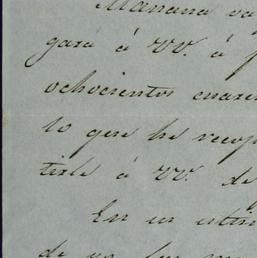 Mañana va
gará á VV. á
ochocientos cuaren
lo que he recop
tirle á VV. de
En un
de